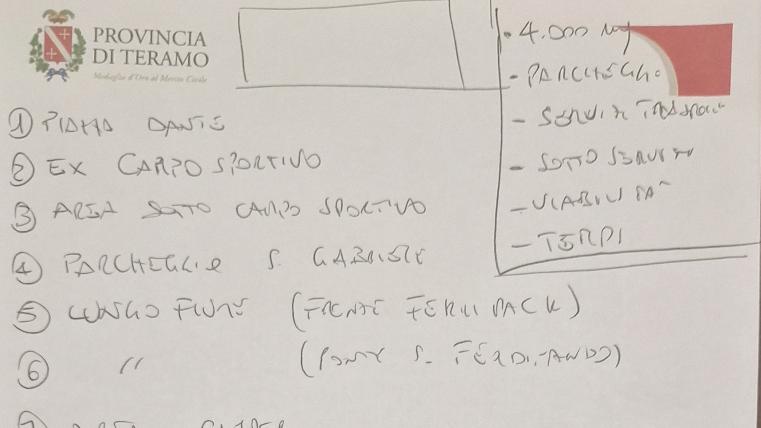 PROVINCIA
DI TERAMO
Medaglia d'Oro al Merito Civile
① PIAZZA DANTE
② EX CAMPO SPORTIVO
③ AREA SOTTO CAMPO SPORTIVO
④ PARCHEGGIO S. GABRIELE
⑤ LUNGO FIUME (FRONTE FERMI PACK)
⑥ " (PONTE S. FERDINANDO)
• 4.000 mq
- PARCHEGGIO
- SERVIZI TRASPORTI
- SOTTO SERVIZI
- VIABILITÀ
- TEMPI